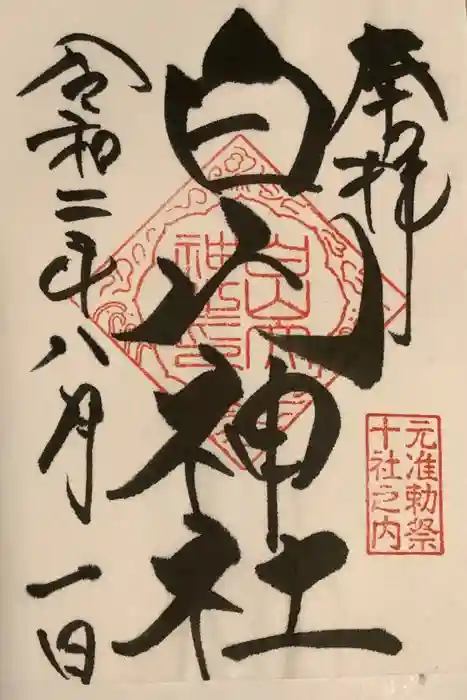 奉拝
白山神社
令和二年八月一日
元准勅祭
十社之内